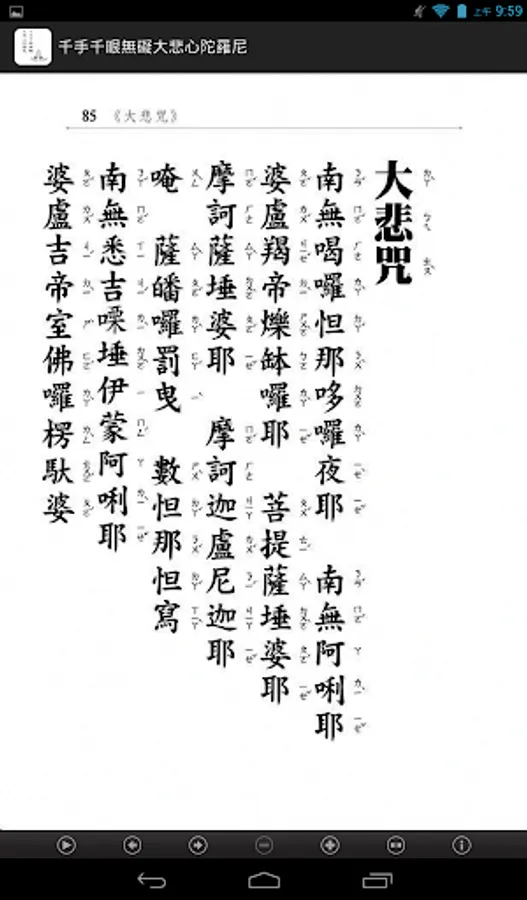 上午 9:59
千手千眼無礙大悲心陀羅尼
85 《大悲咒》
大悲咒
南無喝囉怛那哆囉夜耶 南無阿唎耶
婆盧羯帝爍缽囉耶 菩提薩埵婆耶
摩訶薩埵婆耶 摩訶迦盧尼迦耶
唵 薩皤囉罰曳 數怛那怛寫
南無悉吉嘌埵伊蒙阿唎耶
婆盧吉帝室佛囉楞馱婆